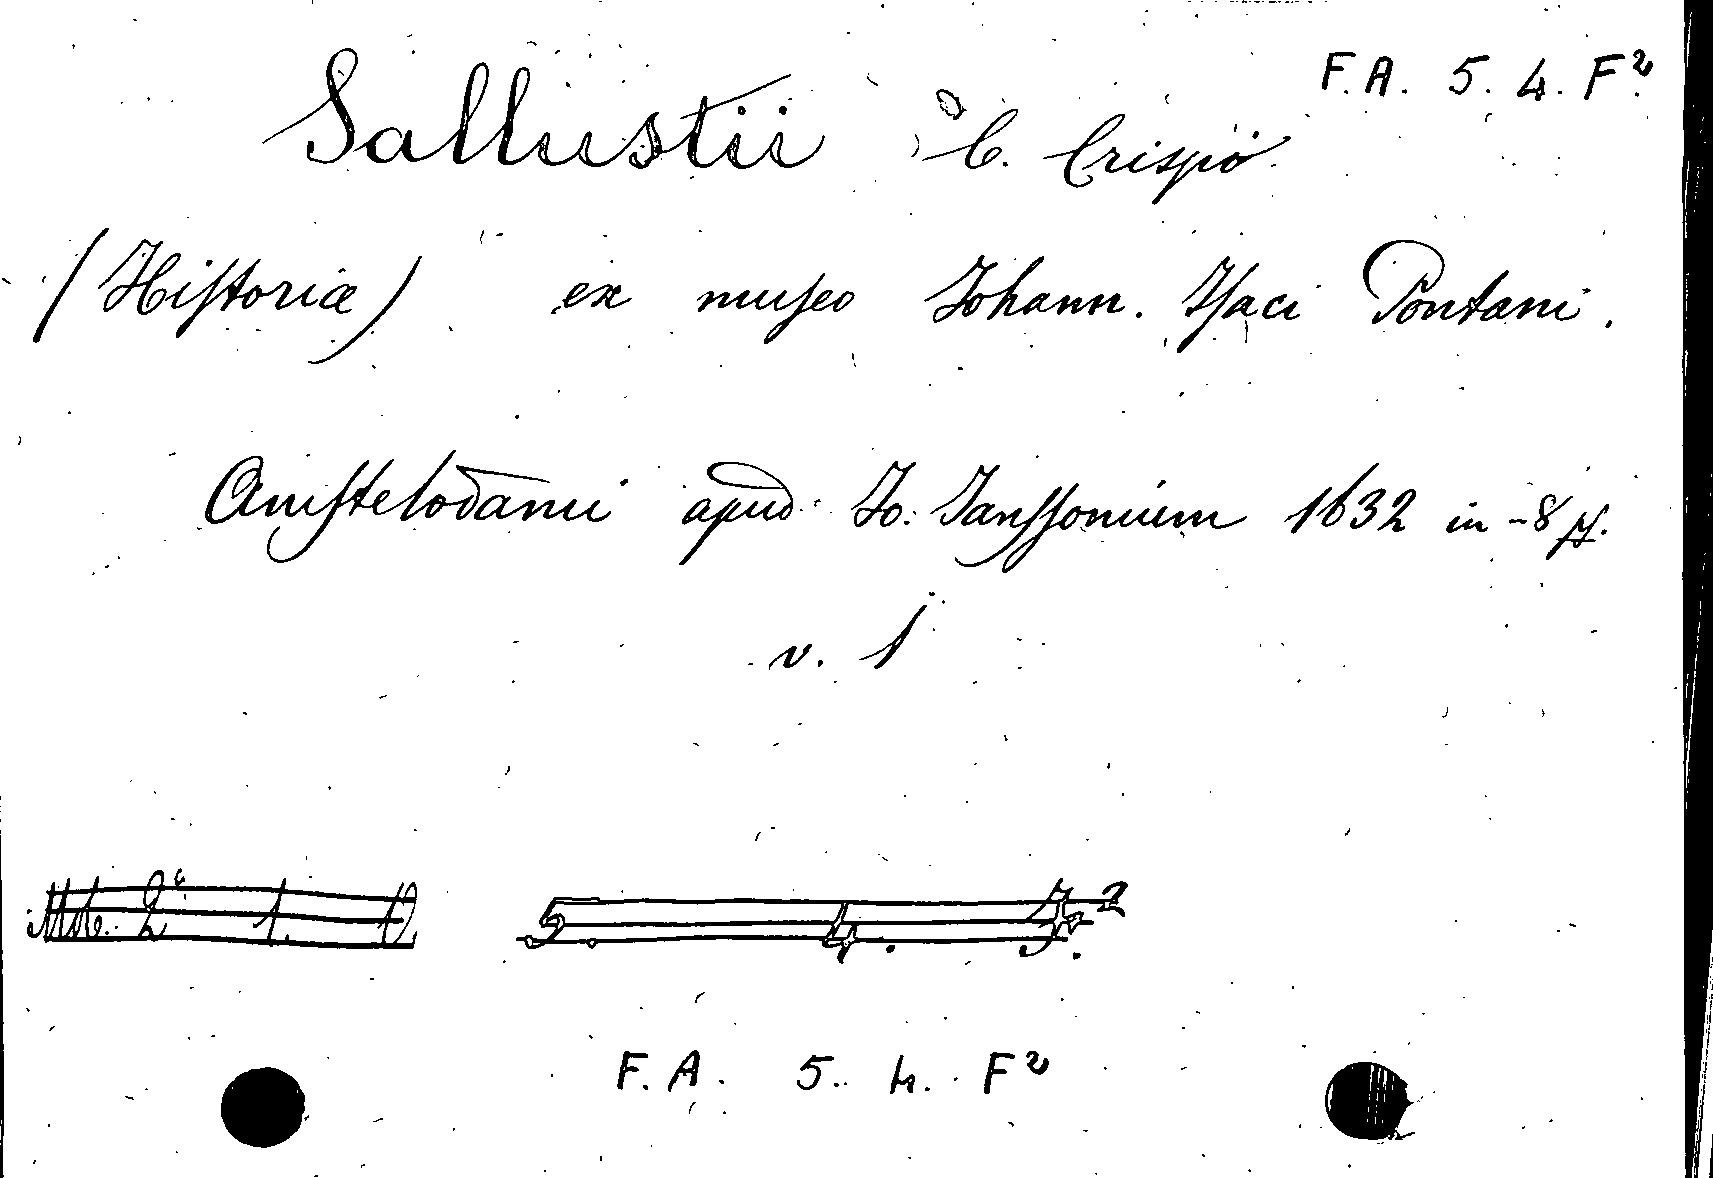 F. A. 5. 4. F²
Sallustii C. Crispi
(Historiæ) ex museo Johann. Isaci Pontani.
Amstelodami apud Jo. Janssonium 1632 in-8 pf.
v. 1
2ª 1. 5. 4. F²
F. A. 5. 4. F²